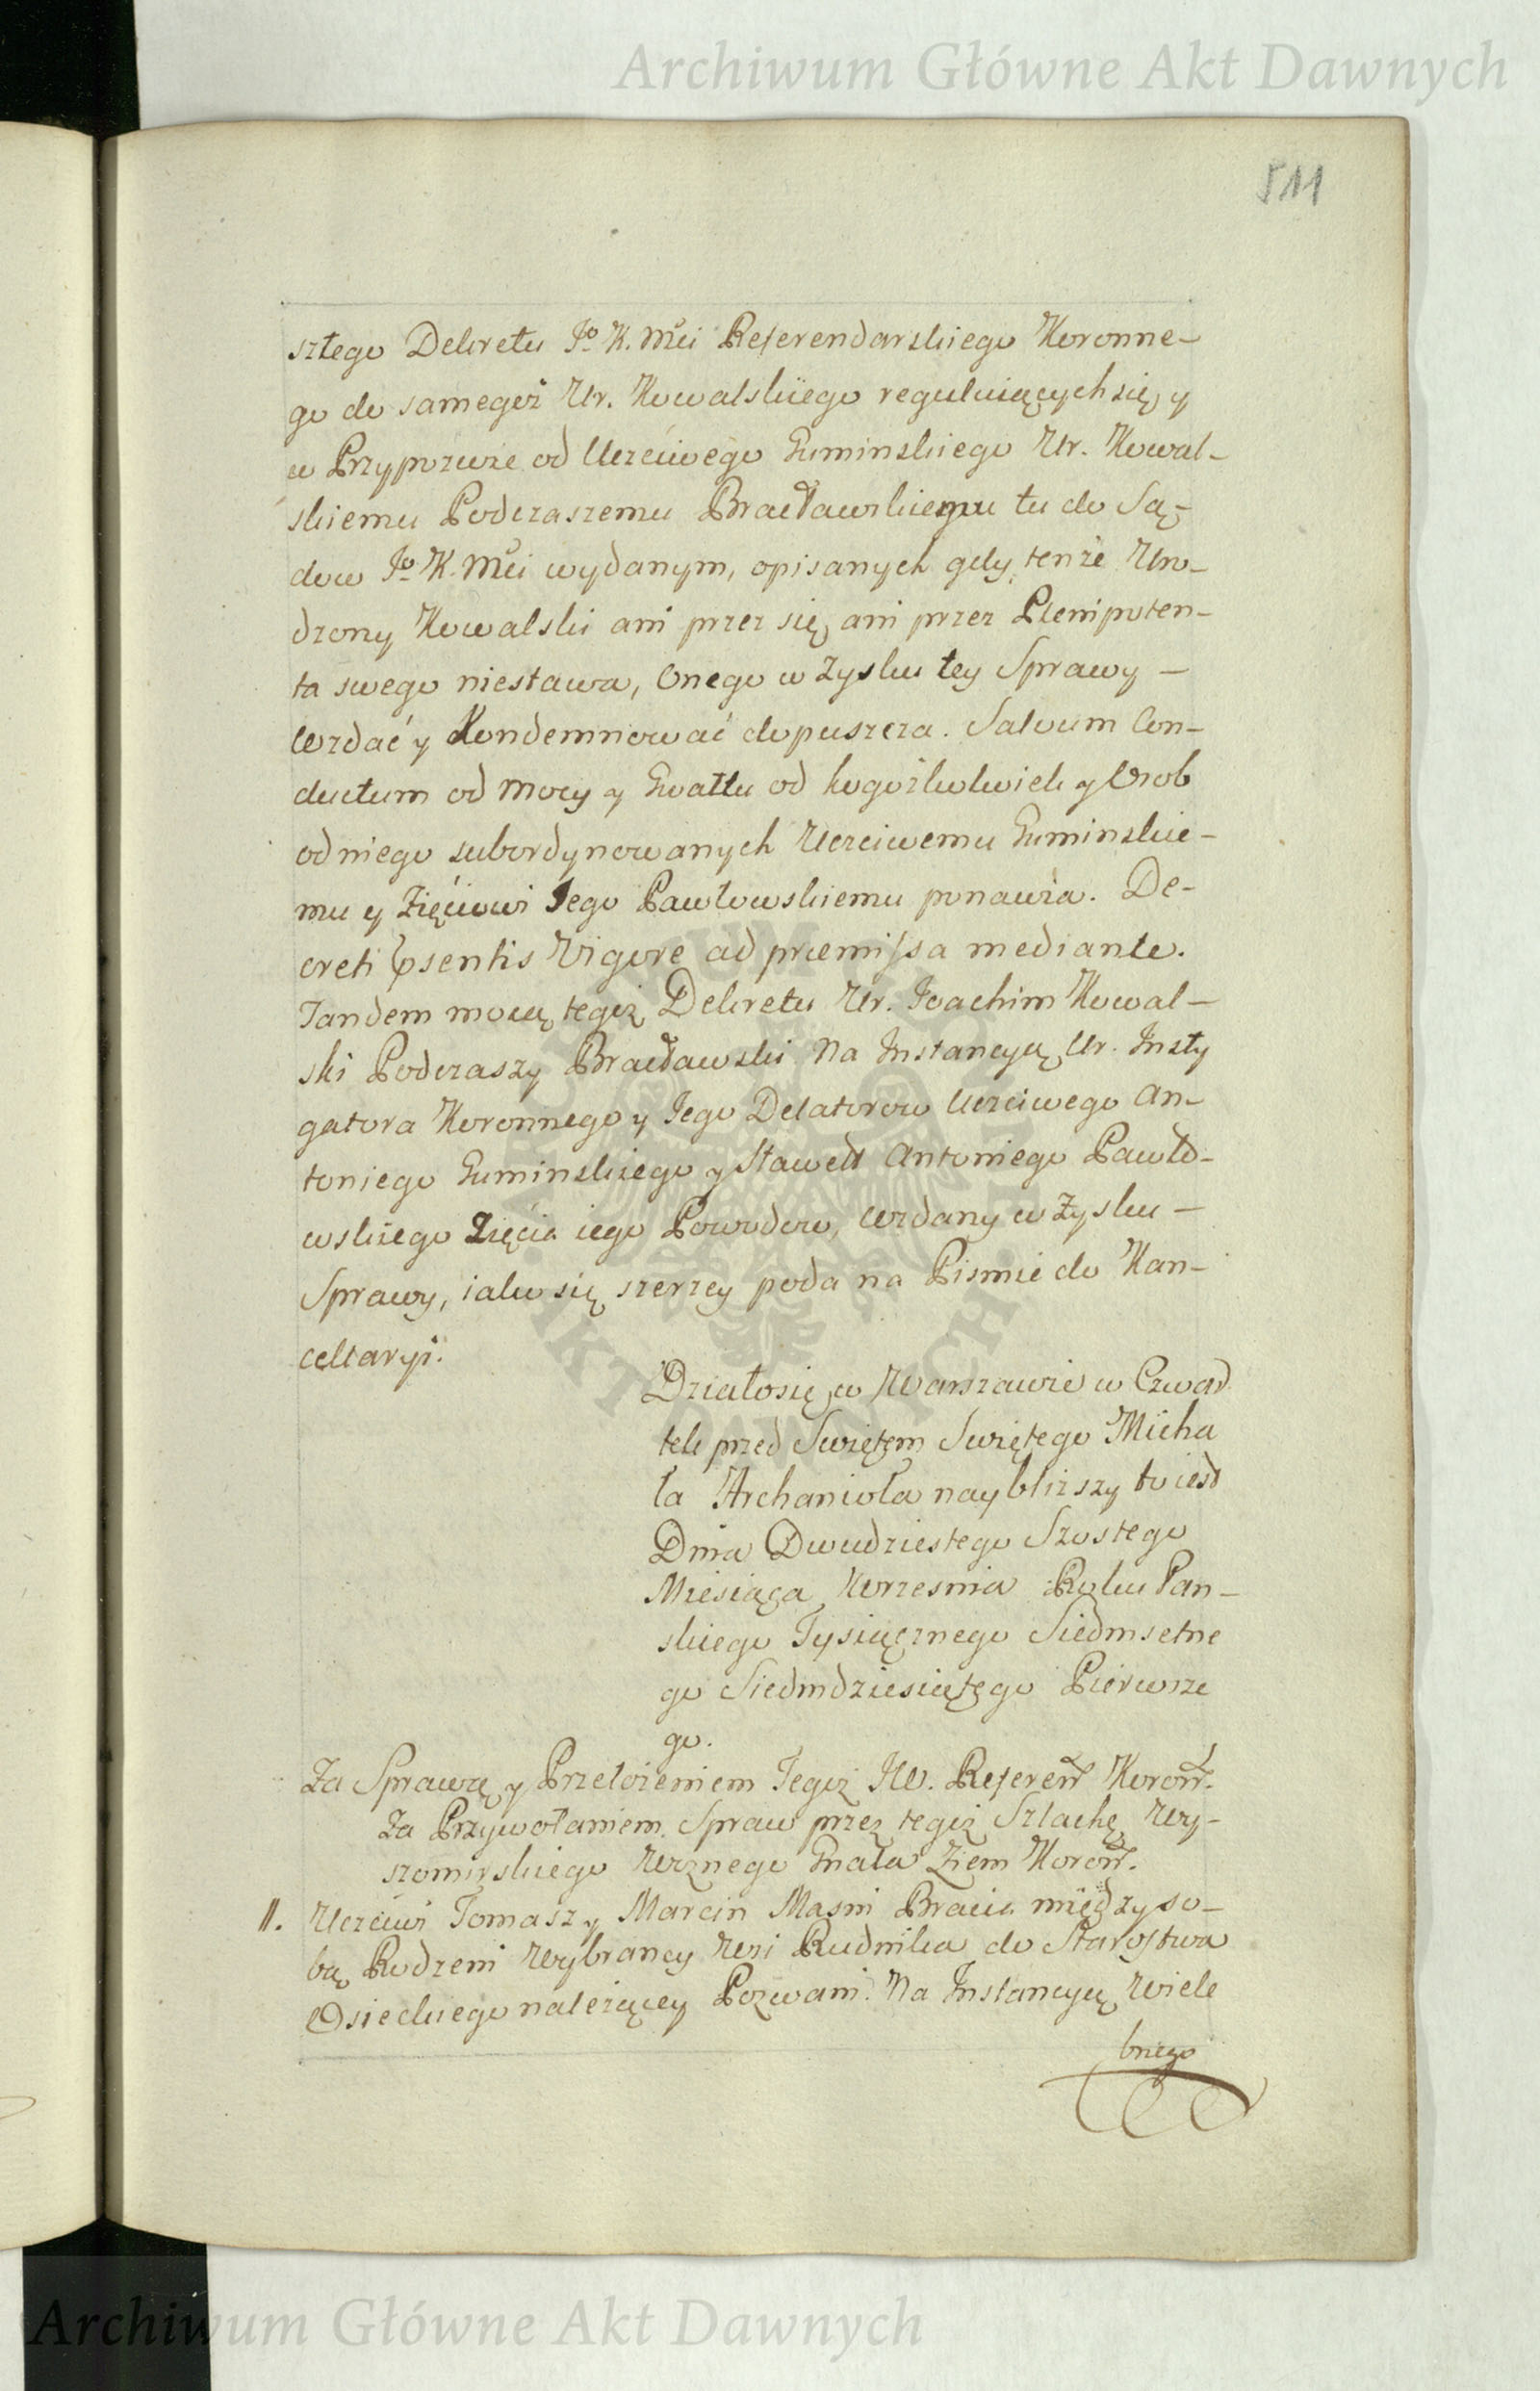 Archiwum Główne Akt Dawnych
511
szłego Dekretu Jº K. Mci Referendarskiego Koronne-
go do samegoż Ur. Kowalskiego reguluiących się y
w Przypozwie od Uczciwego Guminskiego Ur. Kowal-
skiemu Podczaszemu Bracławskiemu tu do Są-
dow Jº K. Mci wydanym, opisanych gdy tenże Uro-
dzony Kowalski ani przez się ani przez Plenipoten-
ta swego niestawa, Onego w Zysku tey Sprawy —
Wzdać y Kondemnować dopuszcza. Salvum Con-
ductum od Mocy y Gwałtu od kogożkolwiek y Osob
od niego subordynowanych Uczciwemu Guminskie-
mu y Zięciowi Jego Pawłowskiemu ponawia. De-
creti Psentis Vigore ad præmissa mediante.
Tandem mocą tegoż Dekretu Ur. Joachim Kowal-
ski Podczaszy Bracławski Na Instancyą Ur. Insty
gatora Koronnego y Jego Delatorow Uczciwego An-
toniego Guminskiego y Sławetd Antoniego Pawło-
wskiego Zięcia iego Powodow, wzdany w Zysku —
Sprawy, iako się szerzey poda na Pismie do Kan-
cellaryi.
Działosię w Warszawie w Czwar
tek przed Swiętem Swiętego Micha
ła Archanioła naybliższy to iest
Dnia Dwudziestego Szostego
Miesiąca Wrzesnia Roku Pan-
skiego Tysiącznego Siedmsetne
go Siedmdziesiątego Pierwsze
go.
Za Sprawą y Przełożeniem Tegoż JW. Referen Koron.
Za Przywołaniem Spraw przez tegoż Szlachę Wy-
szomirskiego Woznego Gnała Ziem Koron.
11. Uczciwi Tomasz y Marcin Masni Bracia między so-
bą Rodzeni Wybrancy Wsi Rudnika do Starostwa
Osieckiego należącey Pozwani. Na Instancyą Wiele
bnego
Archiwum Główne Akt Dawnych